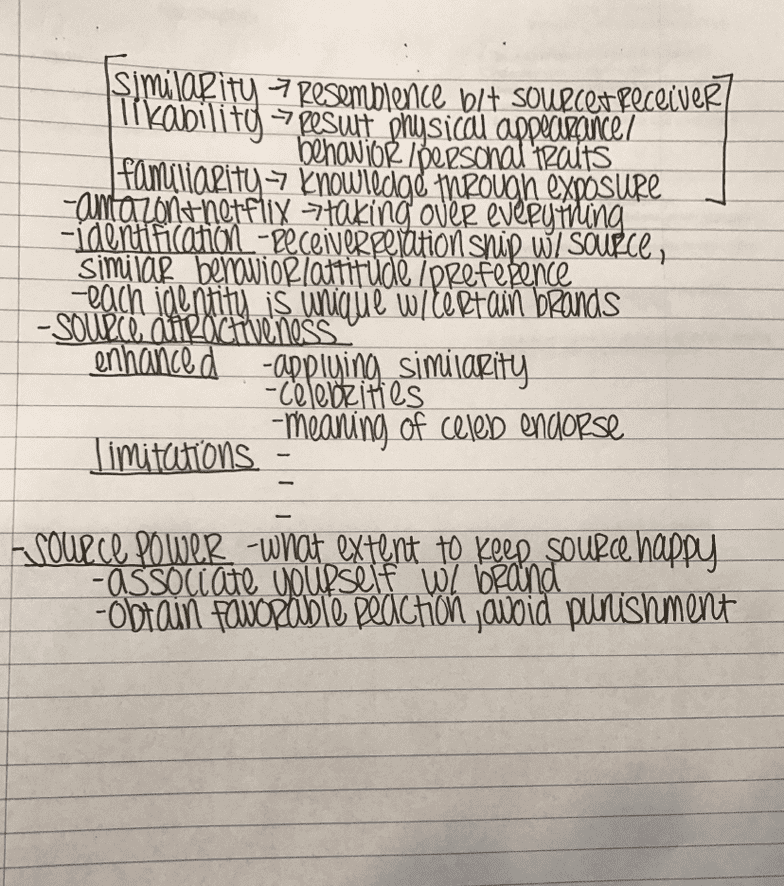 similarity → resemblence b/t source + receiver
likability → result physical appearance/
behavior/personal traits
familiarity → knowledge through exposure
- amazon + netflix → taking over everything
- identification - receiver relationship w/ source,
similar behavior/attitude/preference
- each identity is unique w/ certain brands
- source attractiveness
enhanced - applying similarity
- celebrities
- meaning of celeb endorse
limitations -
-
-
- source power - what extent to keep source happy
- associate yourself w/ brand
- obtain favorable reaction, avoid punishment